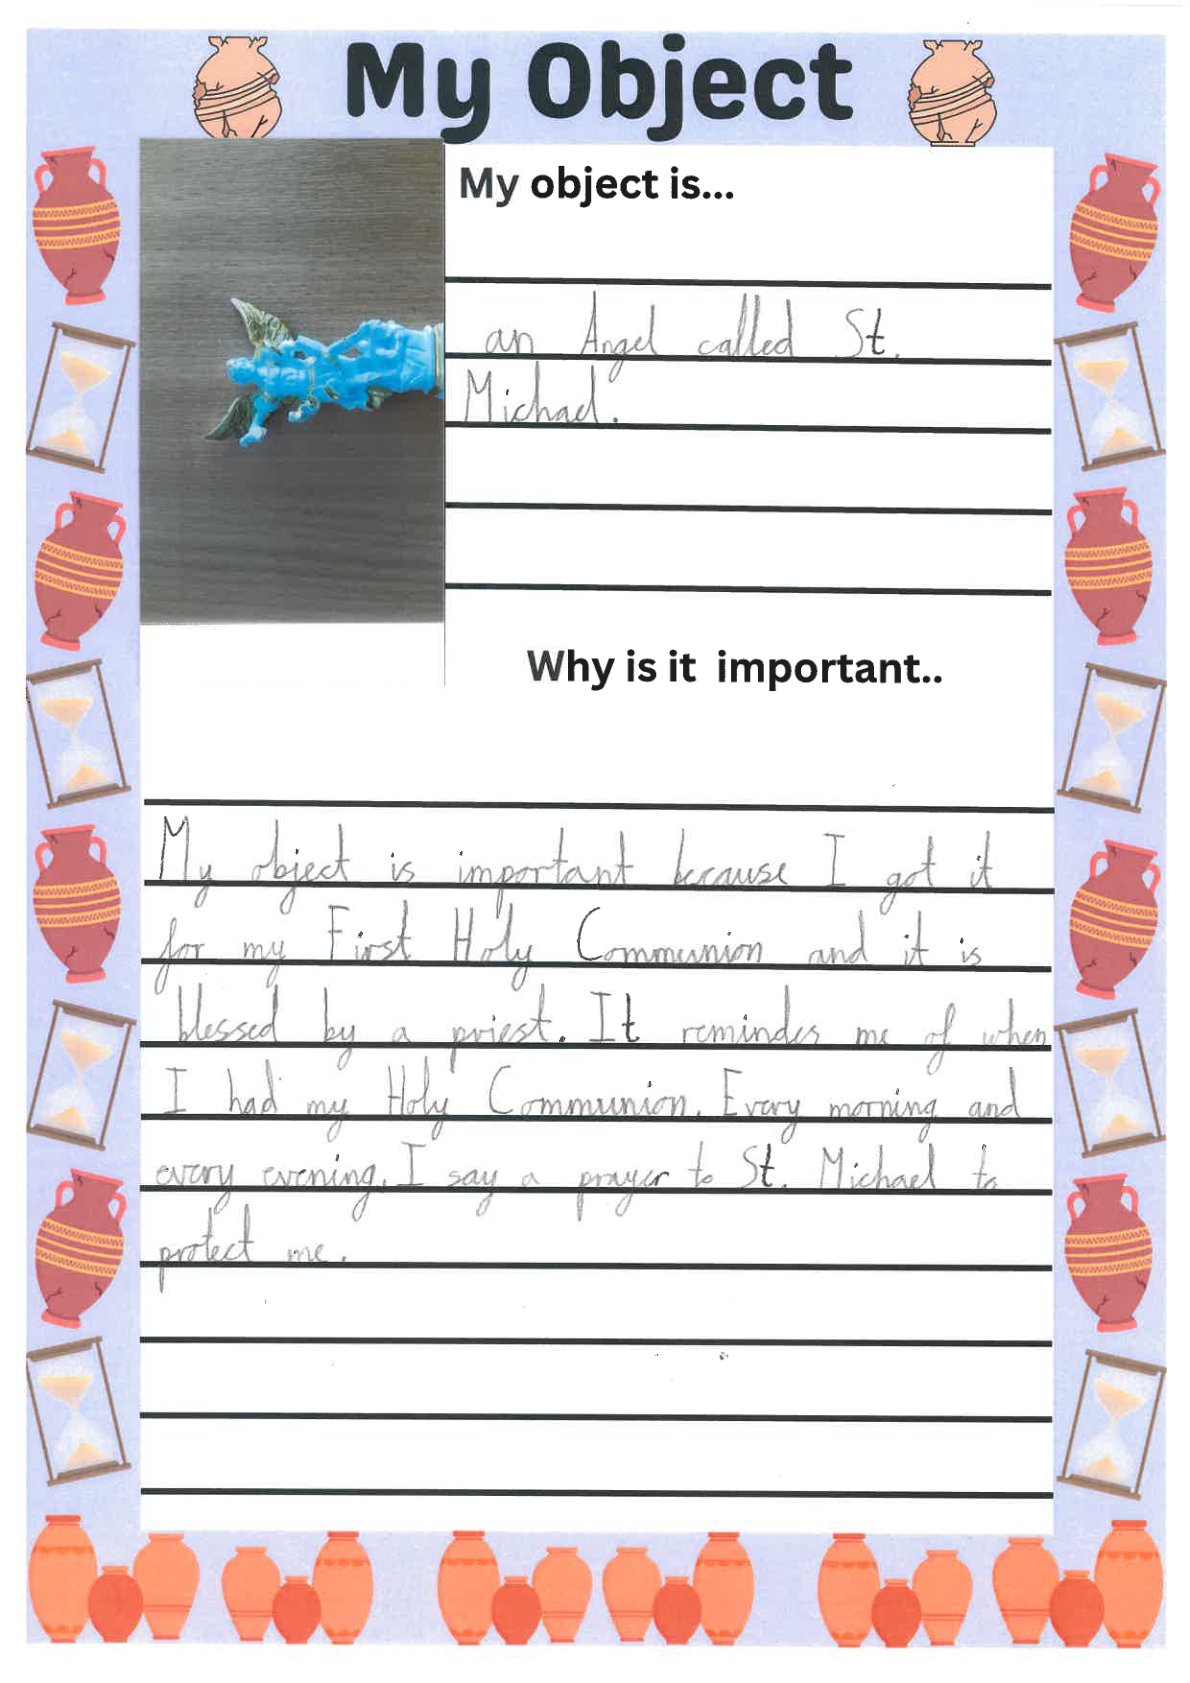 My Object
My object is...
an Angel called St.
Michael.
Why is it important..
My object is important because I got it
for my First Holy Communion and it is
blessed by a priest. It remindes me of when
I had my Holy Communion. Every morning and
every evening, I say a prayer to St. Michael to
protect me.